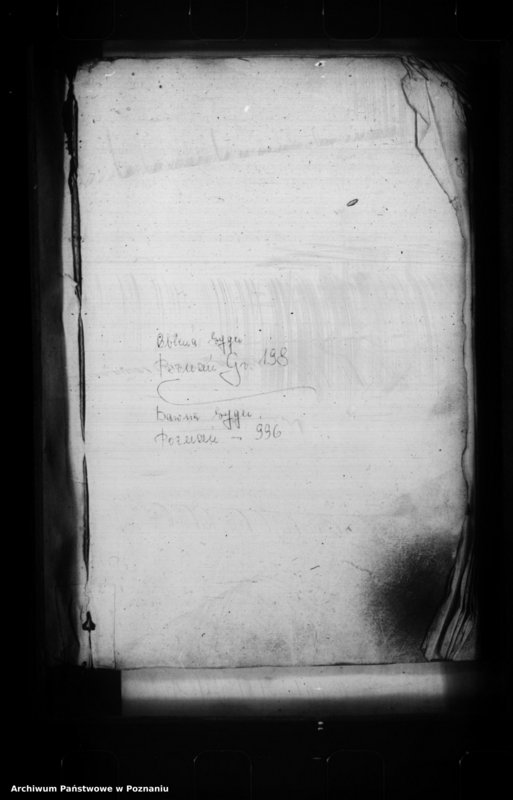 Obecna sygn.
Poznań Gr. 198
Dawna sygn.
Poznań — 996
Archiwum Państwowe w Poznaniu